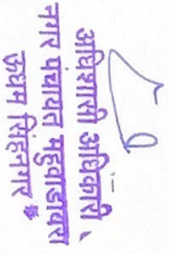 अधिशासी अधिकारी
नगर पंचायत महुवाडाबरा
ऊधम सिंहनगर